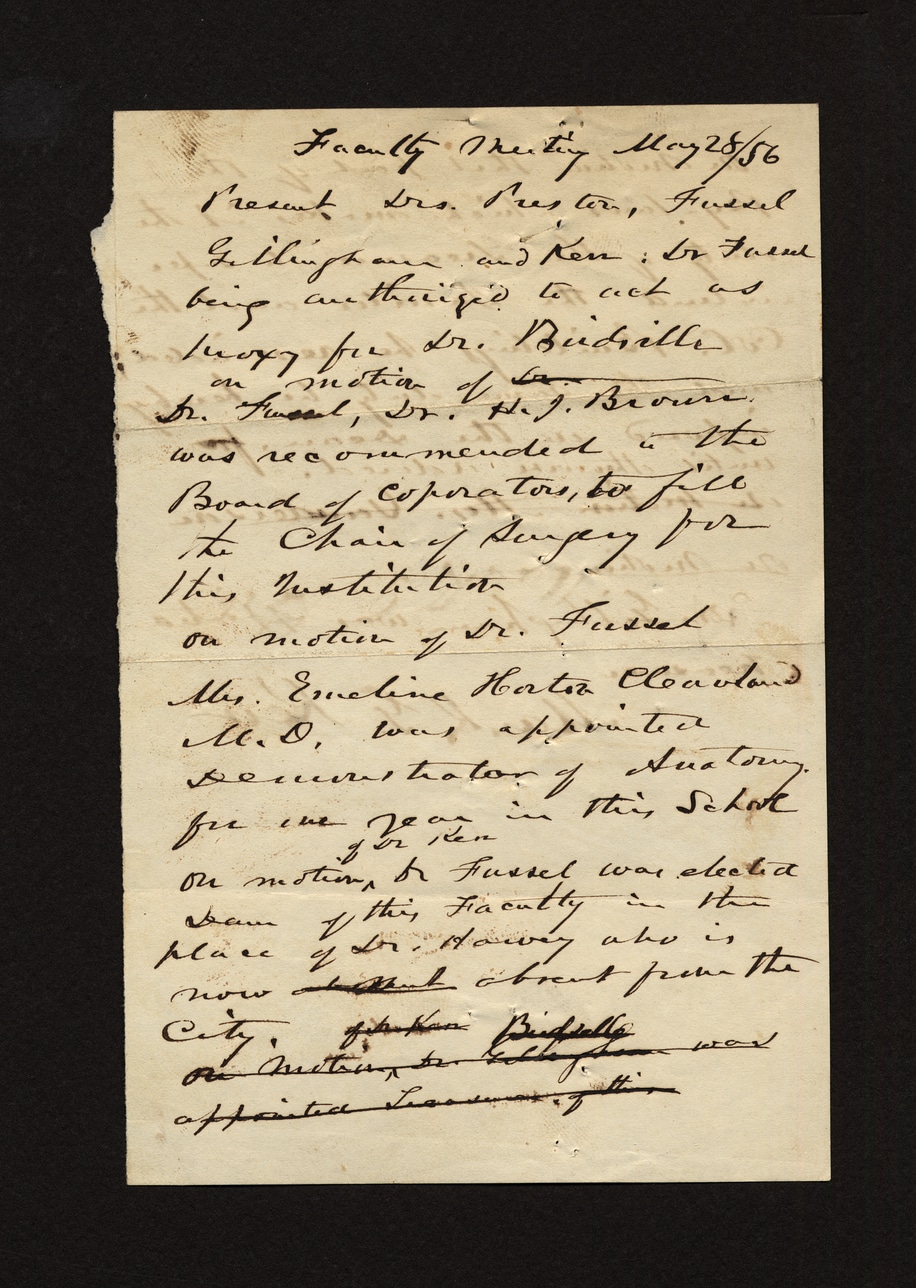 Faculty Meeting May 28/56
Present Drs. Preston, Fussel
Gillingham and Kerr: Dr Fussel
being authorized to act as
proxy for Dr. Birdsille
on motion of Dr.
Dr. Fussel, Dr. H. J. Brown
was recommended to the
Board of Coporators, to fill
the Chair of Surgery for
this Institution
on motion of Dr. Fussel
Mrs. Emeline Horton Cleaveland
M.D. was appointed
Demonstrator of Anatomy.
for one year in this School
of Dr Kerr
on motion, Dr Fussel was elected
Dean of this Faculty in the
place of Dr. Harvey who is
now absent from the
City. of Dr Kerr
on Motion, Dr. Gillingham was
appointed Treasurer of this